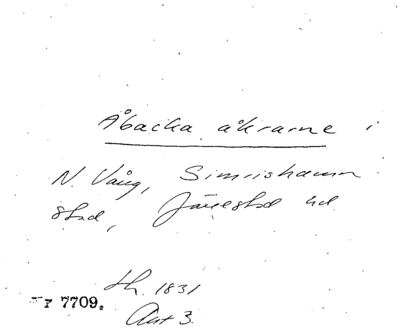 Åbacka åkrarne i
N. Vång, Simrishamn
stad, Järrestad hd
Lh. 1831
Akt 3.
Nr 7709.